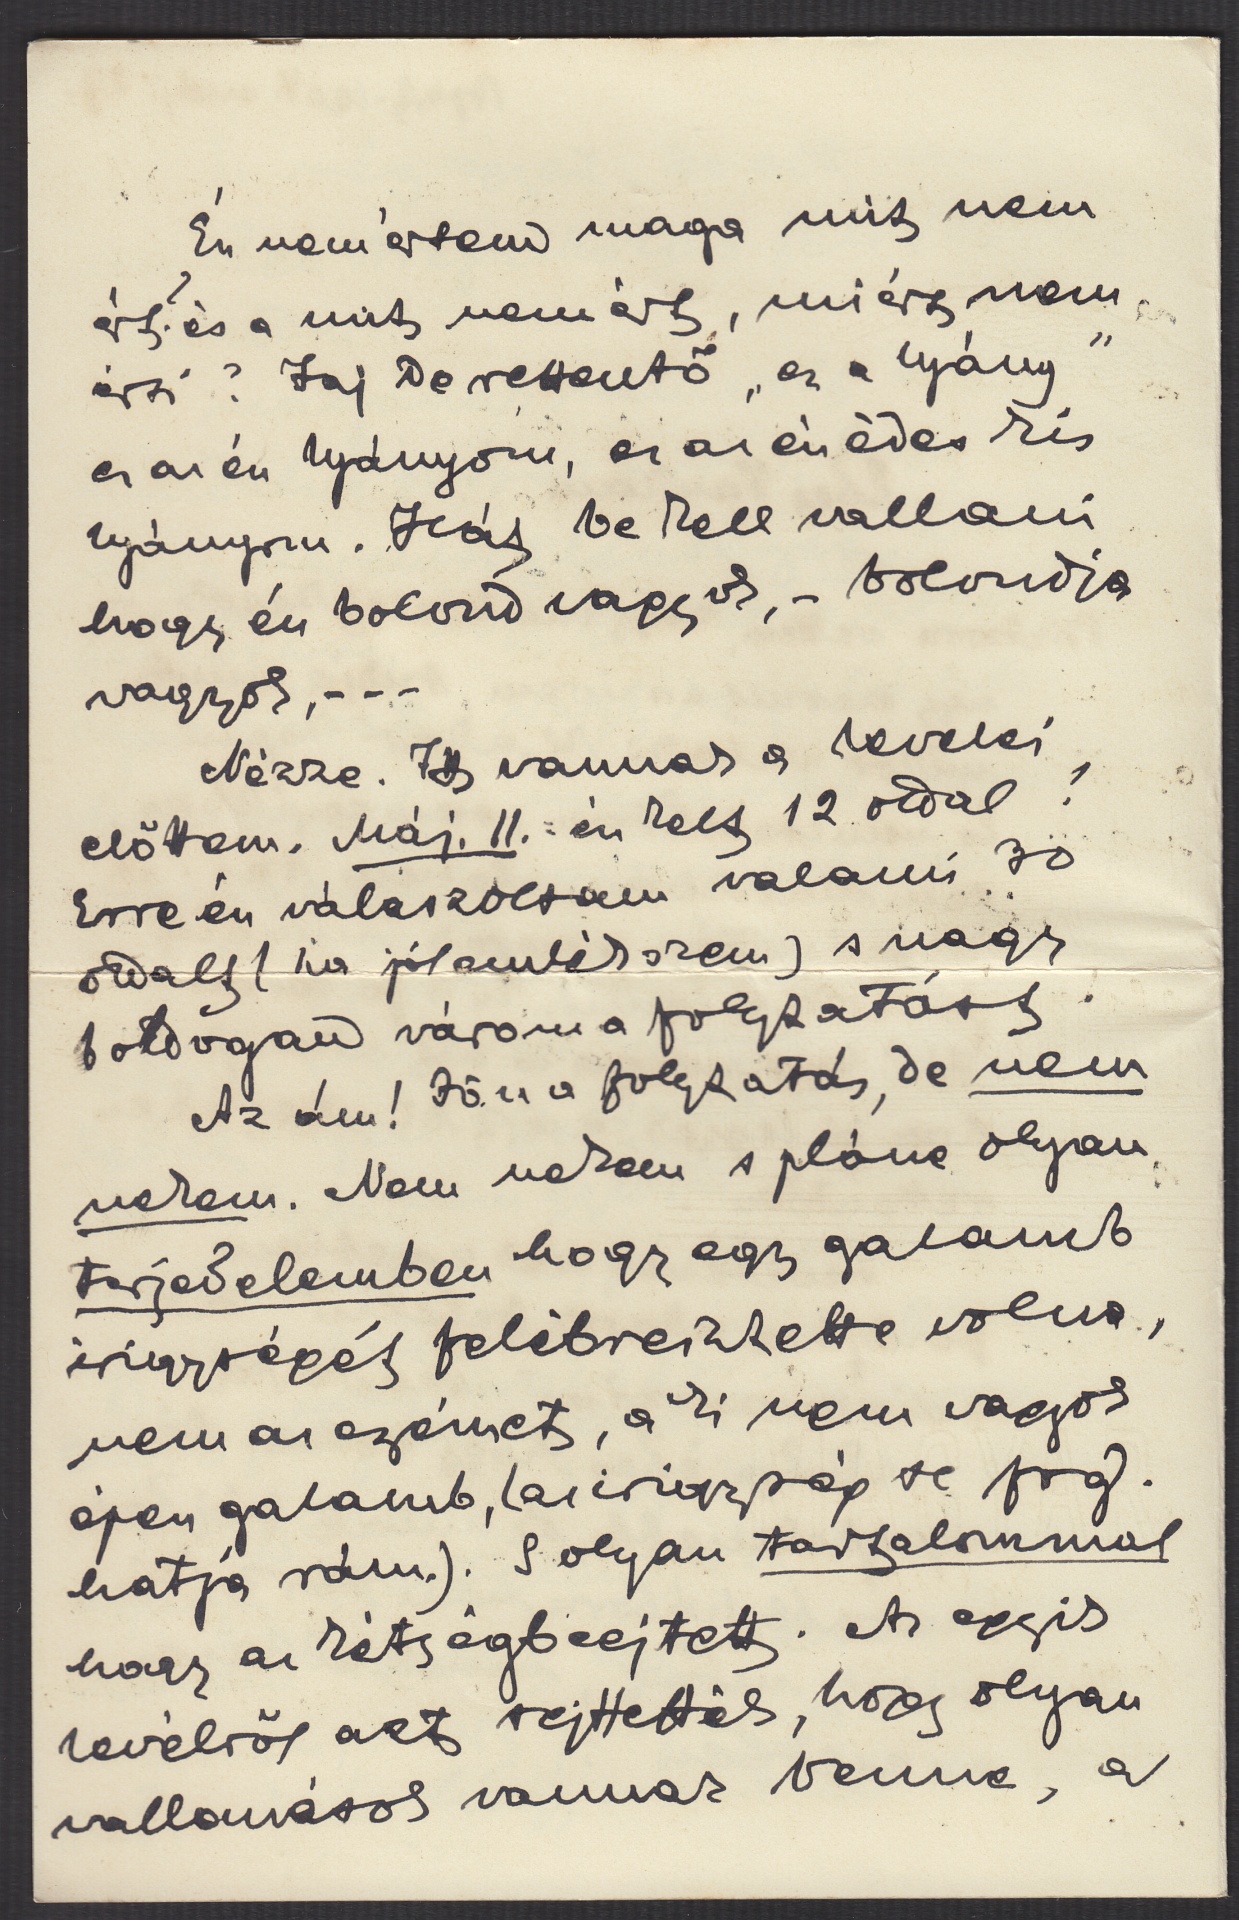 Én nem értem maga mit nem
ért? és a mit nem ért, miért nem
érti? Jaj de rettentő „ez a lyány"
ez az én lyányom, ez az én édes kis
lyányom. Hát be kell vallani
hogy én bolond vagyok, - bolondja
vagyok, - - -
Nézze. Itt vannak a levelei
előttem. Máj. 11.-én kelt 12 oldal!
Erre én válaszoltam valami 30
oldalt (ha jól emlékszem) s nagy
boldogan várom a folytatást.
Az ám! Jön a folytatás, de nem
nekem. Nem nekem s pláne olyan
terjedelemben hogy egy galamb
irigységét felébreiztette volna,
nem az egyémet, a ki nem vagyok
épen galamb, (az irigység se fog-
hatja rám.). S olyan tartalommal
hogy az kétségbeejtett. Az egyik
levélről azt sejttették, hogy olyan
vallomások vannak benne, a